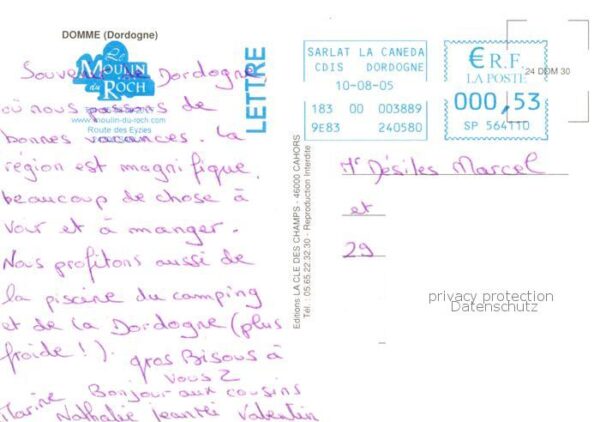 DOMME (Dordogne)
Le
MOULIN
du
ROCH
www.moulin-du-roch.com
Route des Eyzies
Souvenir de Dordogne
où nous passons de
bonnes vacances. La
région est magnifique,
beaucoup de chose à
voir et à manger.
Nous profitons aussi de
la piscine du camping
et de la Dordogne (plus
froide !). gros Bisous à
vous 2
Bonjour aux cousins
Marine Nathalie Valentin
LETTRE
Editions LA CLE DES CHAMPS - 46000 CAHORS
Tél. : 05.65.22.32.30 - Reproduction Interdite
SARLAT LA CANEDA
CDIS DORDOGNE
10-08-05
183 00 003889
9E83 240580
€ R.F.
LA POSTE
000,53
SP 564110
24 DOM 30
Mr Désiles Marcel
et
29
privacy protection
Datenschutz